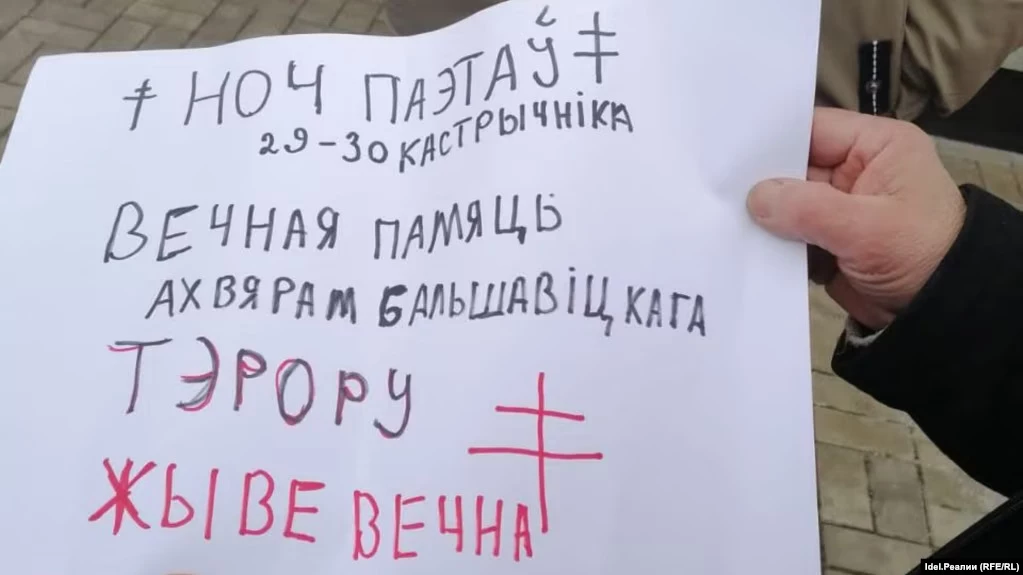 ‡ НОЧ ПАЭТАЎ ‡
29-30 КАСТРЫЧНІКА
ВЕЧНАЯ ПАМЯЦЬ
АХВЯРАМ БАЛЬШАВІЦКАГА
ТЭРОРУ
ЖЫВЕ ВЕЧНА
Idel.Реалии (RFE/RL)